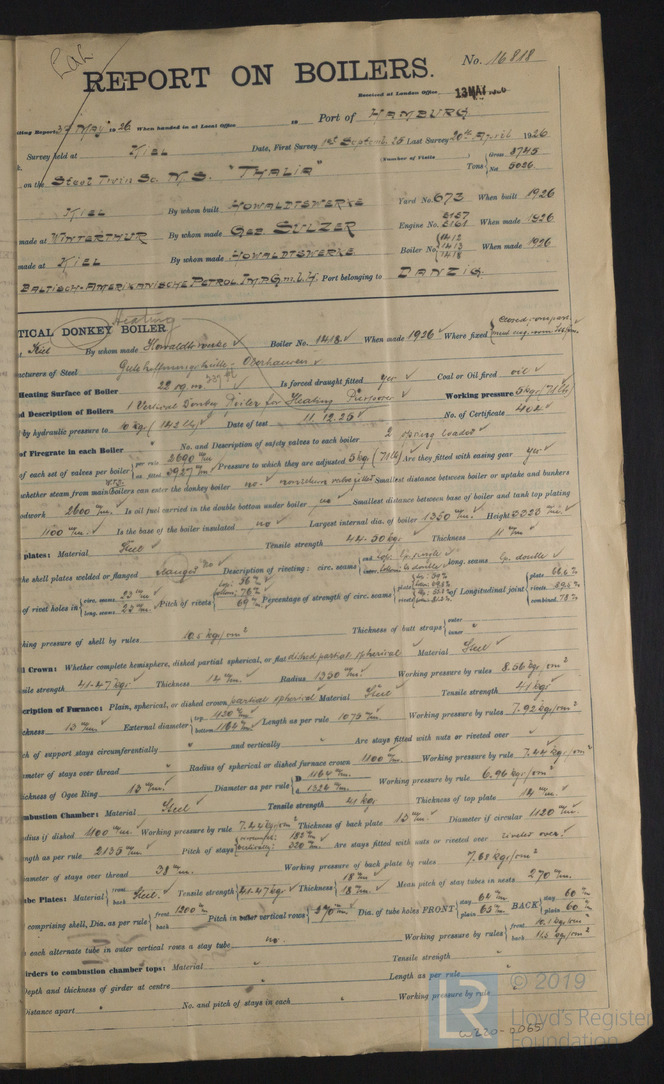 No. 16818
REPORT ON BOILERS.
Received at London Office 13 MAY 1926
ting Report, May 1926 When handed in at Local Office 19 Port of HAMBURG
Survey held at KIEL Date, First Survey 1st September 25 Last Survey 20th April 1926
(Number of Visits Gross 8745
on the Steel Twin Sc. M.S. "THALIA" Tons Net 5026
KIEL By whom built HOWALDTSWERKE Yard No. 673 When built 1926
made at WINTERTHUR By whom made GEB SULZER Engine No. 5161 When made 1926
made at KIEL By whom made HOWALDTSWERKE Boiler No. 1412 1413 1418 When made 1926
BALTISCH-AMERIKANISCHE PETROL. IMP. G.m.b.H. Port belonging to DANZIG
Heating
TICAL DONKEY BOILER
at Kiel By whom made Howaldtswerke Boiler No. 1418 When made 1926 Where fixed
acturers of Steel Gutehoffnungshütte Oberhausen
Heating Surface of Boiler 22 sq. m Is forced draught fitted yes Coal or Oil fired oil
d Description of Boilers 1 Vertical Donkey Boiler for Heating Purposes Working pressure 5 kg (71 lb)
by hydraulic pressure to 10 kg (142 lb) Date of test 11.12.25 No. of Certificate 402
of Firegrate in each Boiler " No. and Description of safety valves to each boiler 2 spring loaded
of each set of valves per boiler per rule 2690 as fitted 3927 Pressure to which they are adjusted 5 kg (71 lb) Are they fitted with easing gear yes
whether steam from main boilers can enter the donkey boiler no. non return valve fitted Smallest distance between boiler or uptake and bunkers
odwork 2600 m/m. Is oil fuel carried in the double bottom under boiler no Smallest distance between base of boiler and tank top plating
1100 m/m. Is the base of the boiler insulated no Largest internal dia. of boiler 1350 m/m. Height
plates: Material Steel Tensile strength 44-50 kgs Thickness 11 m/m
he shell plates welded or flanged flanged Description of riveting: circ. seams end long. seams lp. double
of rivet holes in circ. seams 23 m/m long. seams 22 m/m Pitch of rivets Percentage of strength of circ. seams plate rivets of Longitudinal joint plate rivets combined
king pressure of shell by rules 10.5 kgs/cm² Thickness of butt straps outer inner "
l Crown: Whether complete hemisphere, dished partial spherical, or flat dished partial spherical Material Steel
sile strength 41-47 kgs. Thickness 14 m/m. Radius 1350 m/m. Working pressure by rules 8.56 kgs/cm²
cription of Furnace: Plain, spherical, or dished crown partial spherical Material Steel Tensile strength 41 kgs
ckness 13 m/m External diameter top 1120 m/m bottom 1164 m/m Length as per rule 1075 m/m Working pressure by rules 7.92 kgs/cm²
ch of support stays circumferentially " and vertically " Are stays fitted with nuts or riveted over "
ameter of stays over thread " Radius of spherical or dished furnace crown 1100 m/m Working pressure by rule 7.44 kgs/cm²
ickness of Ogee Ring 15 m/m Diameter as per rule D 1164 m/m d 1324 m/m. Working pressure by rule 6.96 kgs/cm²
mbustion Chamber: Material Steel Tensile strength 41 kg. Thickness of top plate 14 m/m.
adius if dished 1100 m/m. Working pressure by rule 7.44 kg/cm² Thickness of back plate 15 m/m. Diameter if circular 1120 m/m.
ngth as per rule 2135 m/m Pitch of stays 320 m/m Are stays fitted with nuts or riveted over riveted over.
ameter of stays over thread 38 m/m. Working pressure of back plate by rules 7.62 kgs/cm²
ube Plates: Material front back Steel. Tensile strength 41-47 kgs Thickness 18 m/m 18 m/m. Mean pitch of stay tubes in nests 270 m/m.
comprising shell, Dia. as per rule front 1200 m/m back Pitch in outer vertical rows 270 m/m. Dia. of tube holes FRONT stay 64 m/m plain 63 m/m BACK stay 60 m/m plain 60 m/m
each alternate tube in outer vertical rows a stay tube no. Working pressure by rules front back
irders to combustion chamber tops: Material Tensile strength "
epth and thickness of girder at centre Length as per rule
istance apart " No. and pitch of stays in each " Working pressure by rule "
LR © 2019
Lloyd's Register
Foundation
W220-0065